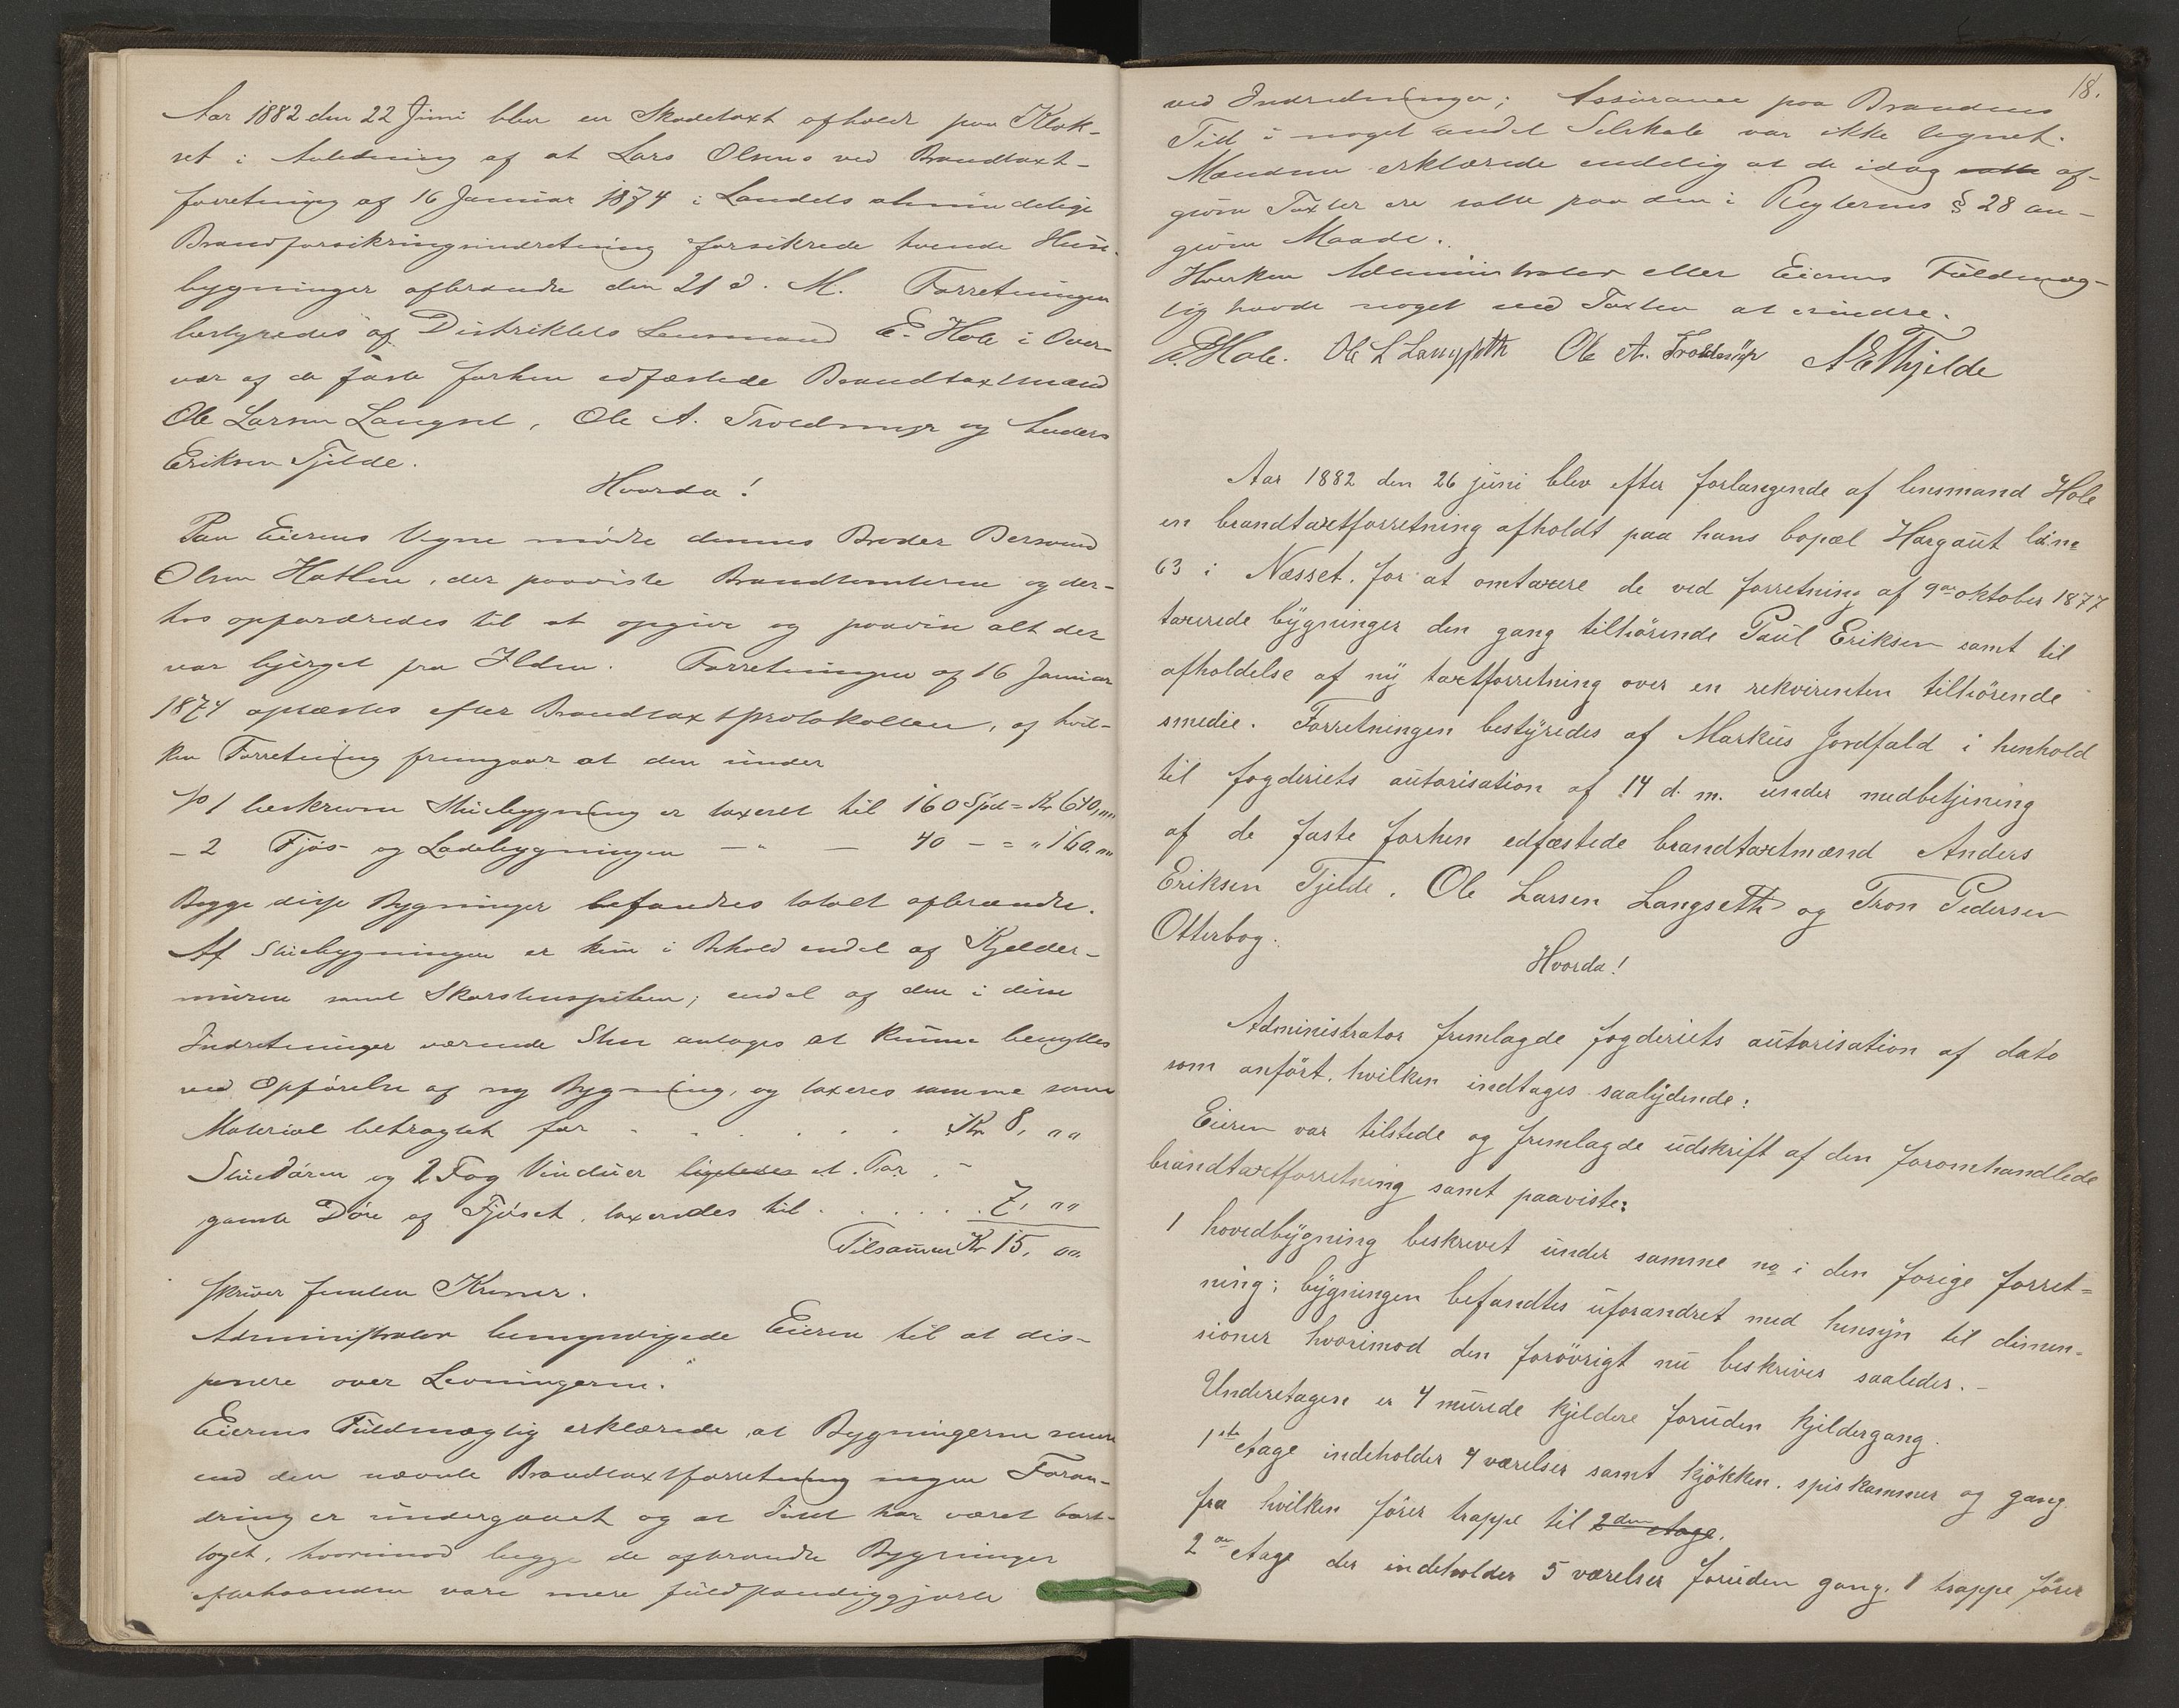 Aar 1882 den 22 Juni blev en Skadetaxt afholdt paa Klok-
set i Anledning af at Lars Olsens ved Brandtaxt-
forretning af 16 Januar 1874 i Landets almindelige
Brandforsikringsindretning forsikrede tvende Huse-
bygninger afbrændte den 21 d. M. Forretningen
bestyredes af Distriktets Lensmand E. Hole i Over-
vær af de faste forhen edfæstede Brandtaxtmænd
Ole Larsen Langset, Ole A. Troldmyr og Anders
Eriksen Tjelde.
Hvorda!
Paa Eierens Vegne mødte dennes Broder Bersvend
Olsen Hatlen, der paaviste Brandtomterne og der-
hos opfordredes til at opgive og paavise alt der
var bjerget fra Ilden. Forretningen af 16 Januar
1874 oplæstes efter Brandtaxtprotokollen, af hvil-
ken Forretning fremgaar at den under
No 1 beskrevne Stuebygning er taxeret til 160 Spd = Kr 640,""
- 2 Fjøs- og Ladebygningen - " - 40 - = " 160.""
Begge disse Bygninger befandtes totalt afbrændte.
Af Stuebygningen er kun i Behold endel af Kjelder-
muren samt Skorstenspiben; endel af den i disse
Indretninger værende Sten antages at kunne benyttes
ved Opførelse af ny Bygning, og taxeres samme som
Material betragtet for . . . . . . Kr 8, ""
Stuedøren og 2 Fag Vinduer ligeledes et Par
gamle Døre af Fjøset, taxeredes til . . . . . 7, ""
Tilsammen Kr 15, ""
skriver femten Kroner.
Administrator bemyndigede Eieren til at dis-
ponere over Levningerne.
Eierens Fuldmægtig erklærede, at Bygningerne siden
end den nævnte Brandtaxtforretning ingen Foran-
dring er undergaaet og at Intet har været bort-
taget, hvorimod begge de afbrændte Bygninger
efterhaanden vare mere fuldstændiggjorte
18.
ved Indredninger; Assurance paa Brandens
Tid i noget andet Selskab var ikke tegnet.
Mændene erklærede endelig at de idag satte af-
givne Taxter ere satte paa den i Reglernes § 28 an-
givne Maade.
Hverken Administrator eller Eierens Fuldmæg-
tig havde noget ved Taxten at erindre.
E. Hole. Ole L Langseth Ole A. Troldmyr A E Thjelde
Aar 1882 den 26 juni blev efter forlangende af lensmand Hole
en brandtaxtforretning afholdt paa hans bopæl Hargaut løbne
63 i Næsset, for at omtaxere de ved forretning af 9de oktober 1877
taxerede bygninger den gang tilhørende Paul Eriksen samt til
afholdelse af ny taxtforretning over en rekvirenten tilhørende
smedie. Forretningen bestyredes af Markus Jordfald i henhold
til fogderiets autorisation af 14 d. m. under medbetjening
af de faste forhen edfæstede brandtaxtmænd Anders
Eriksen Tjelde, Ole Larsen Langseth og Tron Pedersen
Otterbog.
Hvorda!
Administrator fremlagde fogderiets autorisation af dato
som anført, hvilken indtages saalydende:
Eieren var tilstede og fremlagde udskrift af den foromhandlede
brandtaxtforretning samt paaviste:
1 hovedbygning beskrevet under samme no i den forige forret=
ning; bygningen befandtes uforandret med hensyn til dimen=
sioner hvorimod den forøvrigt nu beskrives saaledes.-
Underetagen er 4 murede kjeldere foruden kjeldergang.
1ste etage indeholder 4 værelser samt kjøkken, spiskammer og gang
fra hvilken fører trappe til 2den etage.
2en etage der indeholder 5 værelser foruden gang. 1 trappe fører